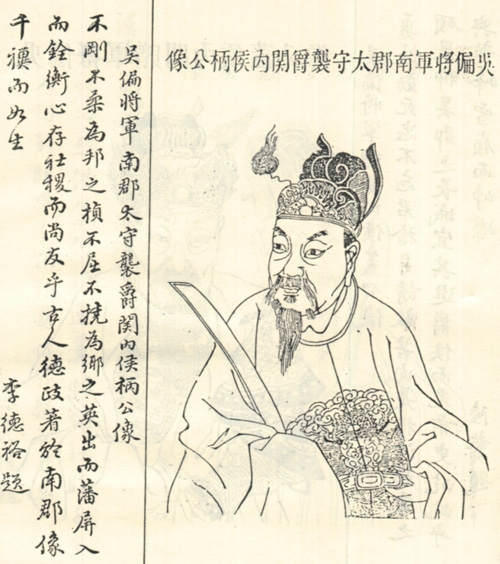 吳偏將軍南郡太守襲爵関内侯柄公像
吴偏將軍南郡太守襲爵関内侯柄公像
不剛不柔為邦之楨不屈不撓為鄉之英出而藩屏入
而銓衡心存社稷而尚友乎古人德政著於南郡像
千禩而如生
李德裕題